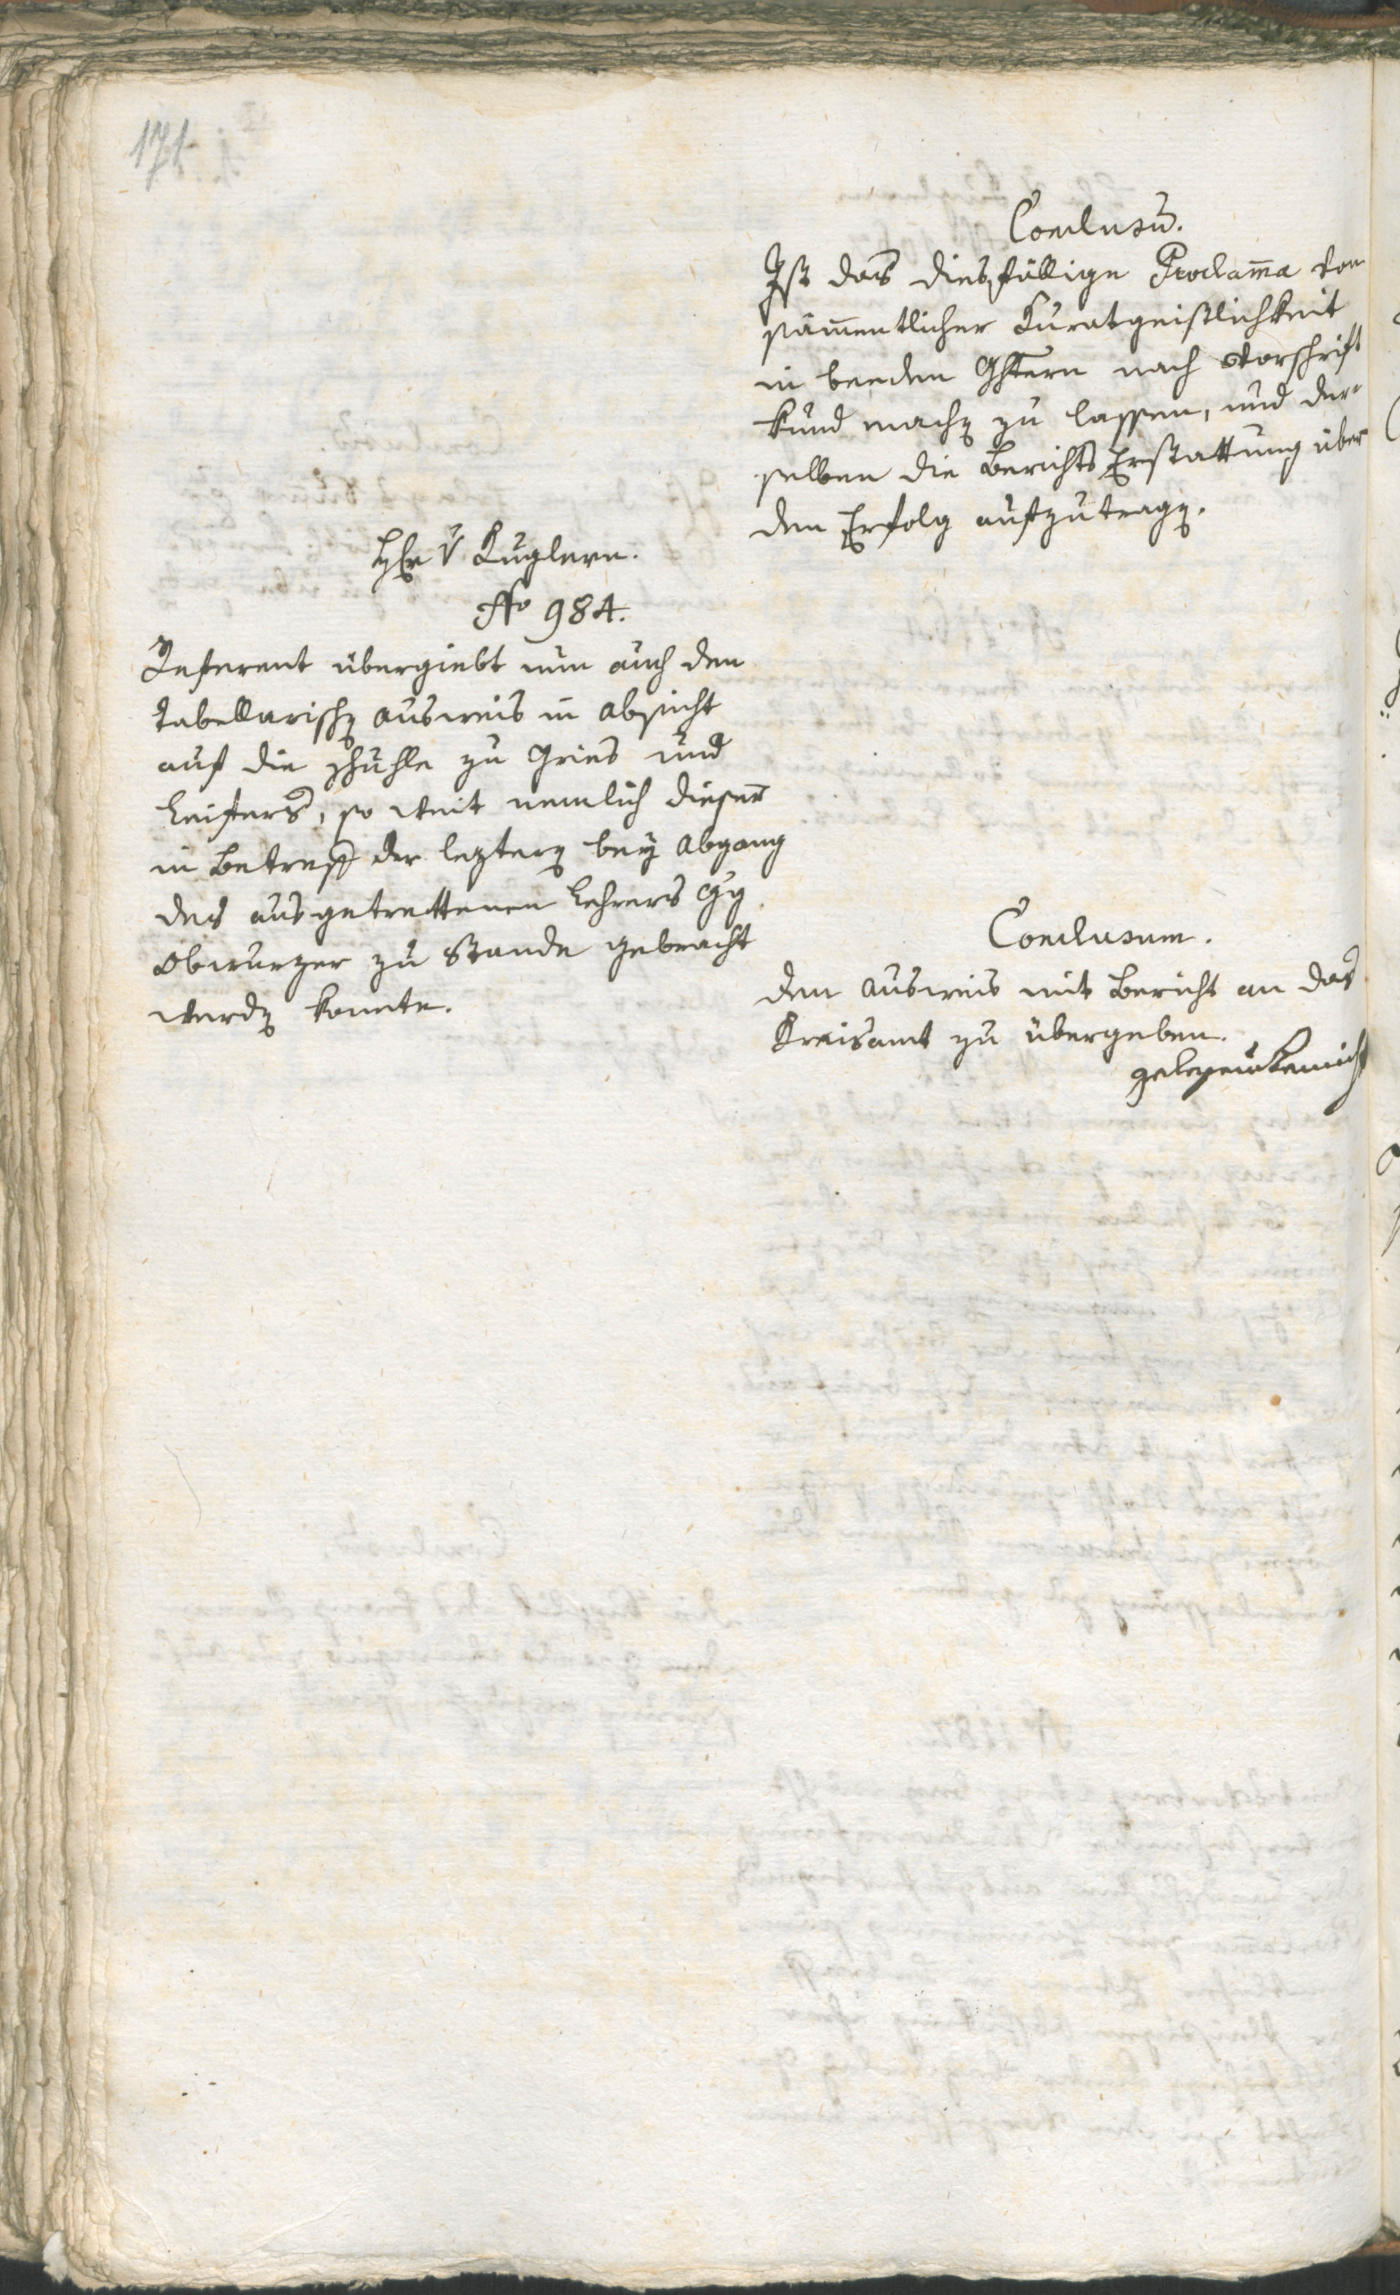 171
Conclusum̅.
Ist das diesfällige Proclam̅a von
säm̅entlicher Curatgeistlichkeit
in beeden Ghtern nach Vorschrift
kund machen zu lassen, und der=
selben die Berichts Erstattung über
den Erfolg aufzutragen.
Hr v Kuglern.
No 984.
Referent übergiebt nun auch den
tabellarischen Ausweis in Absicht
auf die Schulle zu Gries und
Leifers, so weit nemlich dieser
in Betreff der leztern bey Abgang
des ausgetrettenen Lehrers Gg
Obwurzer zu Stande gebracht
werden konnte.
Conclusum.
den Ausweis mit Bericht an das
Kreisamt zu übergeben.